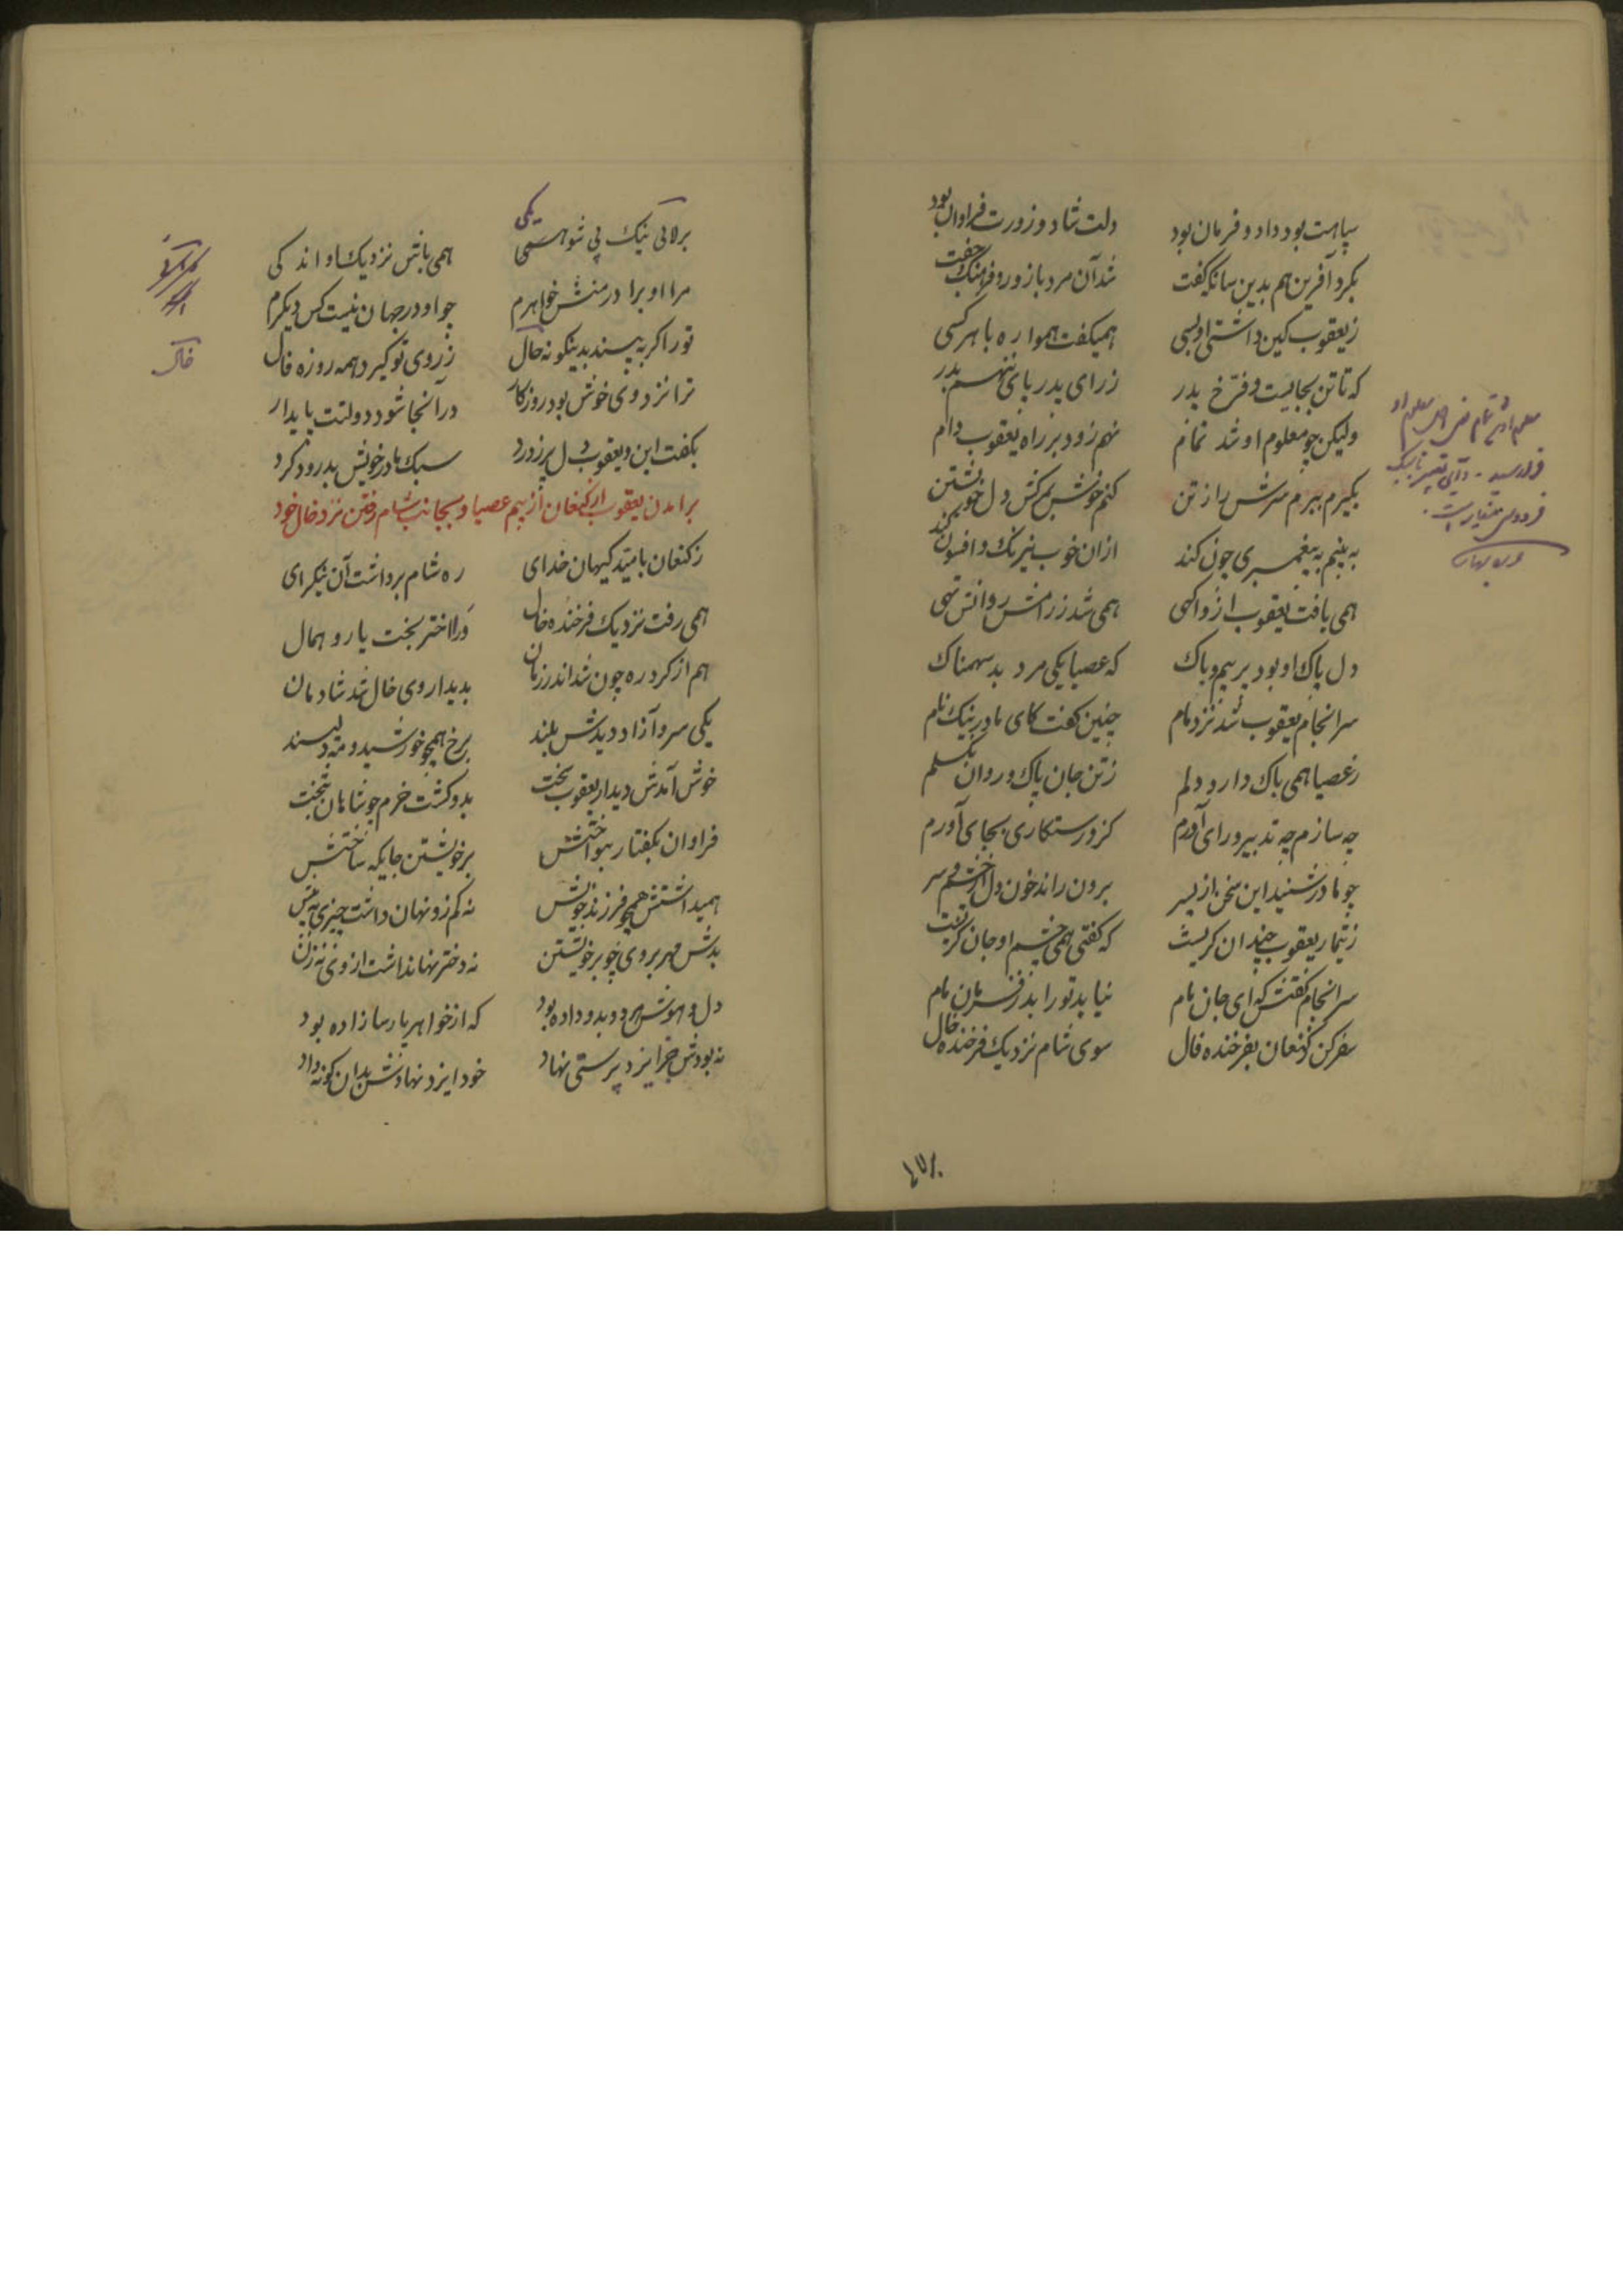 سپاهت بود داد و فرمان بود دلت شاد و زورت فراوان بود
بکرد آفرین هم بدین سانکه گفت شد آن مرد با زور و فرهنک جفت
ز یعقوب کین داشتی او بسی همیکفت همواره با هر کسی
که تا تن بجایست و فرّخ پدر ز رای پدر پای ننهم بدر
ولیکن چو معلوم او شد تمام نهم زود بر راه یعقوب دام
بکیرم ببرم سرش را ز تن کنم خونش بر کش دل خویشتن
به بینم به پیغمبری چون کند ازان خوب نیرنک و افسون کند
همی یافت یعقوب ازو اکهی همی شد ز رامش روانش تهی
دل پاک او بود پر بیم و باک که عصیا یکی مرد بد سهمناک
سرانجام یعقوب شد نزد مام چنین کفت کای مادر نیک نام
ز عصیا همی باک دارد دلم ز تن جان پاک و روان بکسلم
چه سازم چه تدبیر و رای آورم کزو رستکاری بجای آورم
چو مادر شنید این سخن از پسر برون راند خون دل از چشم سر
ز تیمار یعقوب چندان کریست که کفتی همی چشم او جان کریست
سرانجام کفتش که ای جان مام نیاید تو را بد ز فرمان مام
سفر کن ز کنعان بفرخنده فال سوی شام نزدیک فرخنده خال
معلوم او
فردوسی
یکی
بر لابی نیک پی شو همی همی باش نزدیک او اندکی
مرا او برادر منش خواهرم چو او در جهان نیست کس دیکرم
تو را کر به پسند بدینکونه حال ز روی تو کیرد همه روزه فال
ترا نزد وی خوش بود روزکار در آنجا شود دولتت پایدار
بکفت این و یعقوب دل پر ز درد سبک مادر خویش بدرود کرد
برامدن یعقوب از کنعان از بیم عصیا و بجانب شام رفتن نزد خال خود
ز کنعان بامید کیهان خدای ره شام برداشت آن نیکرای
همی رفت نزدیک فرخنده خال ورا اختر بخت یار و همال
هم از کرد ره چون شد اندر زمان بدیدار وی خال شد شادمان
یکی سرو آزاد دیدش بلند برخ همچو خورشید و مه دلپسند
خوش آمدش دیدار یعقوب سخت بدو کشت خرم چو شاهان بتخت
فراوان بکفتار بنواختش بر خویشتن جایکه ساختش
همیداشتش همچو فرزند خویش نه کم زو نهان داشت چیزی نه بیش
بدش مهر بر وی چو بر خویشتن نه دختر نهان داشت از وی نه زن
دل و هوش هر دو بدو داده بود که از خواهر پارسا زاده بود
نه بودش جز ایزد پرستی نهاد خود ایزد نهادش بدان کونه داد
خال